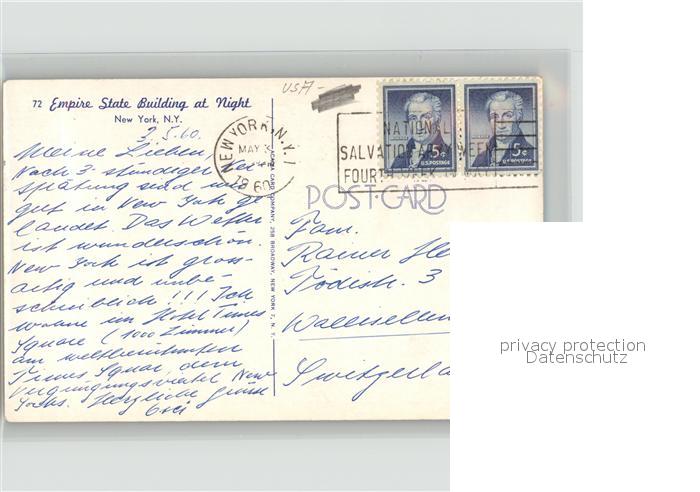 72 Empire State Building at Night
New York, N.Y.
3.5.60.
Meine Lieben,
Nach 3-stündiger Ver-
spätung sind wir
gut in New York ge-
landet. Das Wetter
ist wunderschön.
New York ist gross-
artig und unbe-
schreiblich!!! Ich
wohne im Hotel Times
Square (1000 Zimmer)
am weltberühmten
Times Square, dem
Vergnügungsviertel New
Yorks. Herzliche Grüsse
USA-
NEW YORK, N.Y.
MAY 3
1960
NATIONAL
SALVATION ARMY WEEK
FOURTH WEEK IN MAY
5¢
U.S. POSTAGE
5¢
U.S. POSTAGE
POST CARD
ACACIA CARD COMPANY, 258 BROADWAY, NEW YORK 7, N.Y.
Fam.
Rainer He
Tödistr. 3
Wallisellen
Switzerla
privacy protection
Datenschutz